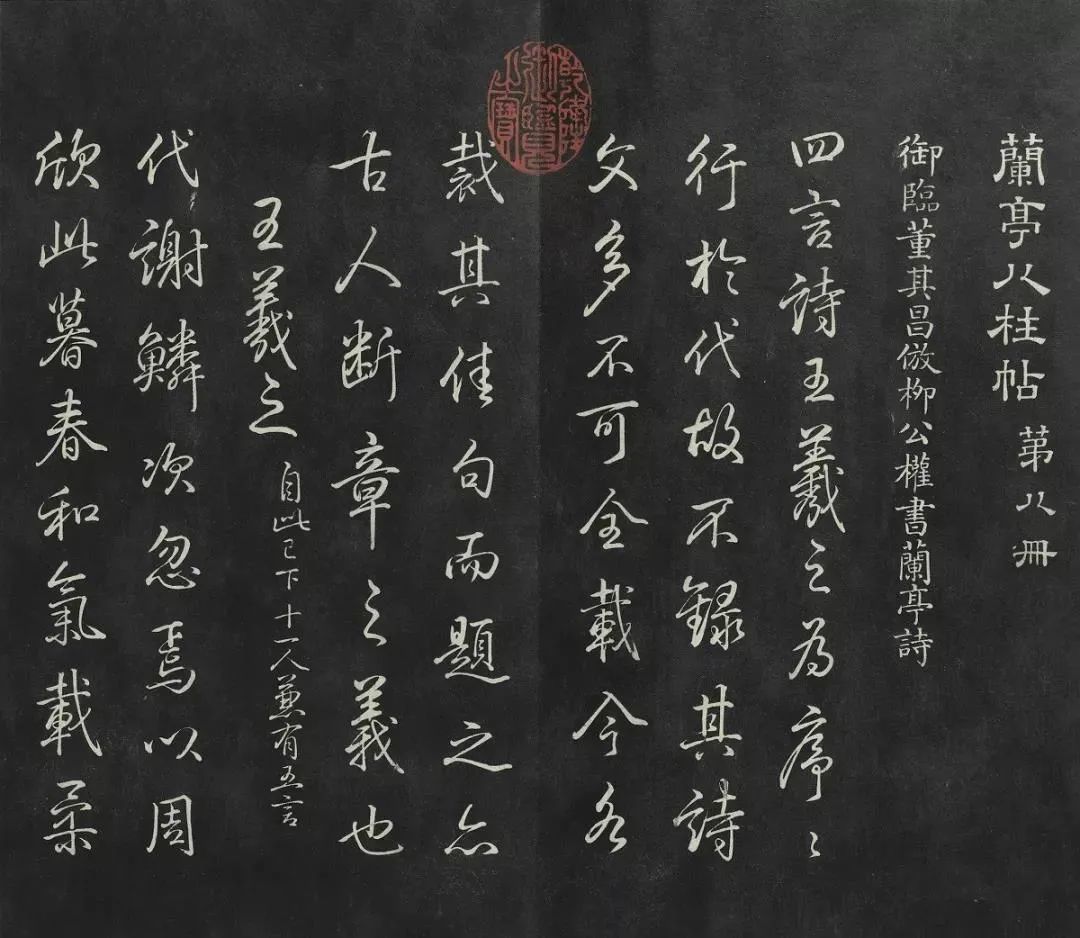 蘭亭八柱帖 第八冊
御臨董其昌倣柳公權書蘭亭詩
四言詩王羲之為序〻
行於代故不錄其詩
文多不可全載今各
裁其佳句而題之亦
古人斷章之義也
王羲之 自此已下十一人兼有五言
代謝鱗次忽焉以周
欣此暮春和氣載柔
乾隆御覽之寶